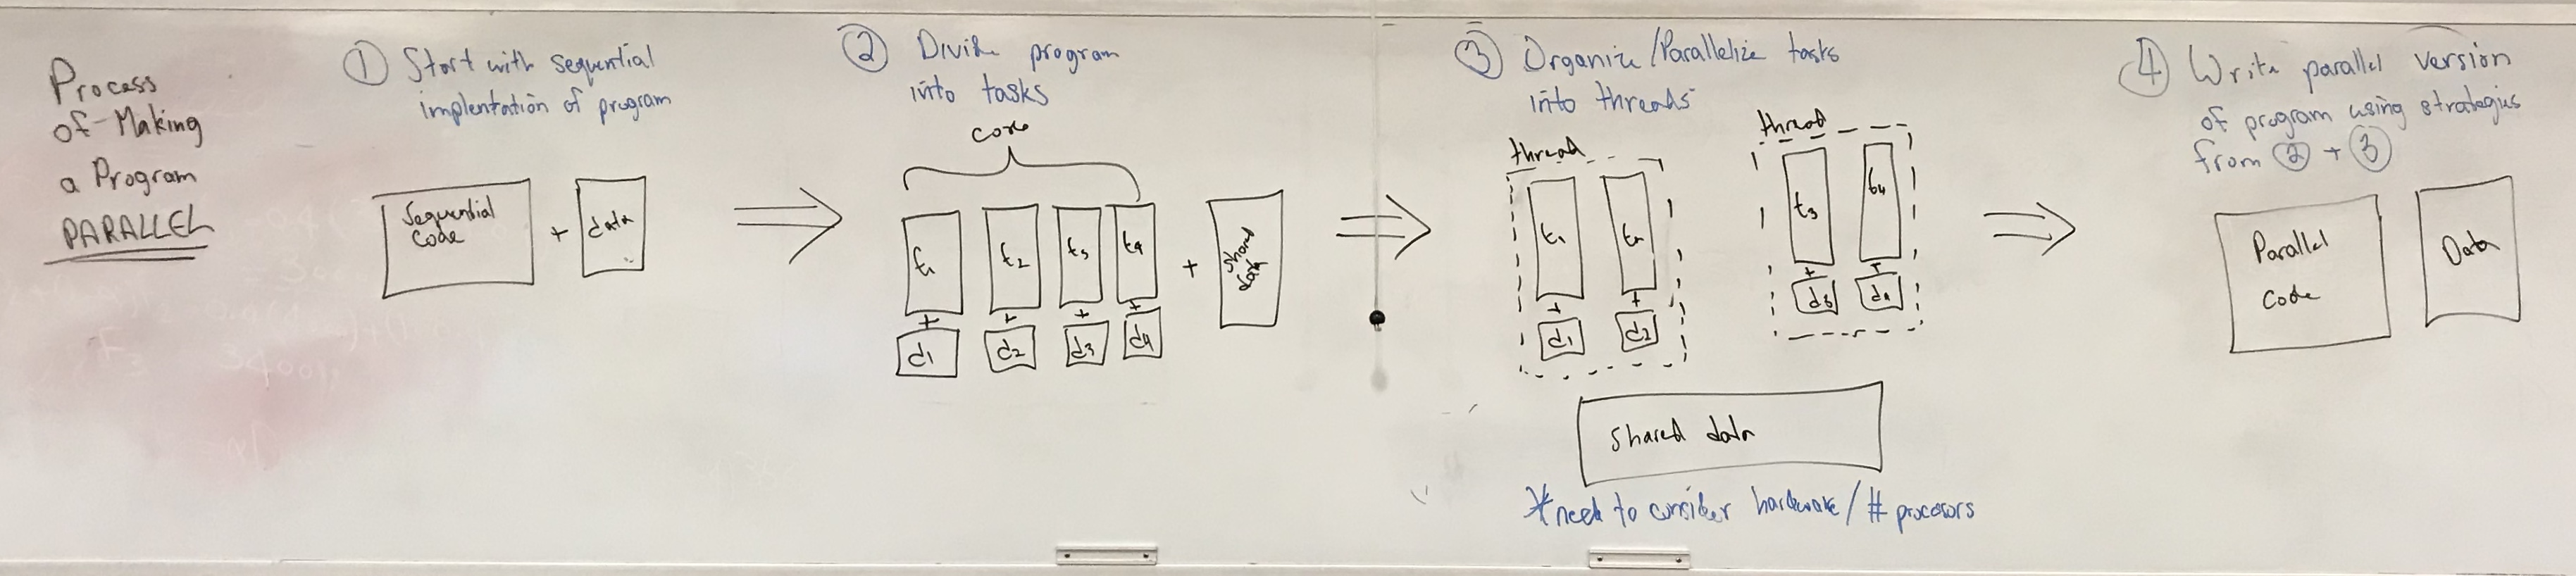 Process
of Making
a Program
PARALLEL
① Start with sequential
implentation of program
Sequential
Code
+
data
② Divide program
into tasks
code
t1
t2
t3
t4
+
+
+
+
d1
d2
d3
d4
+
shared
data
③ Organize/Parallelize tasks
into threads
thread
t1
t2
+
+
d1
d2
thread
t3
t4
+
+
d3
d4
shared data
*need to consider hardware/# procesors
④ Write parallel version
of program using strategies
from ② + ③
Parallel
Code
Data